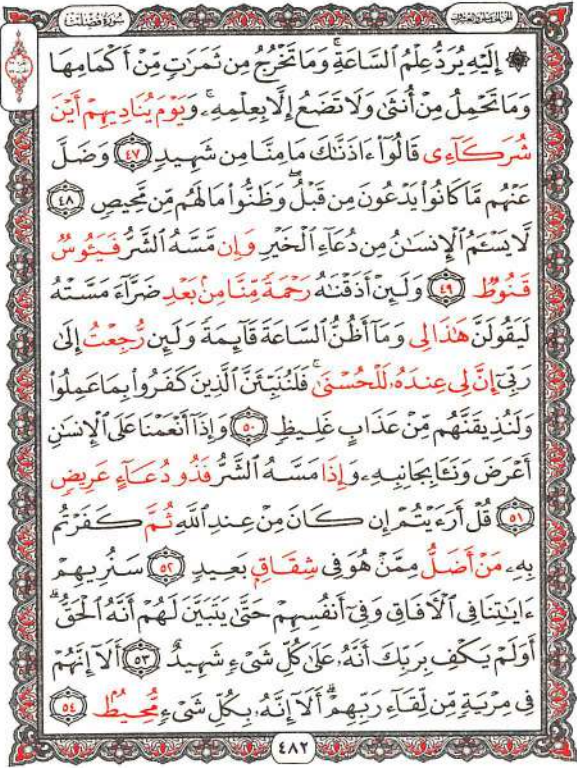 سُورَةُ فُصِّلَتْ
۞ إِلَيْهِ يُرَدُّ عِلْمُ ٱلسَّاعَةِ ۚ وَمَا تَخْرُجُ مِن ثَمَرَٰتٍ مِّنْ أَكْمَامِهَا
وَمَا تَحْمِلُ مِنْ أُنثَىٰ وَلَا تَضَعُ إِلَّا بِعِلْمِهِۦ ۚ وَيَوْمَ يُنَادِيهِمْ أَيْنَ
شُرَكَآءِى قَالُوٓا۟ ءَاذَنَّٰكَ مَا مِنَّا مِن شَهِيدٍ ٤٧ وَضَلَّ
عَنْهُم مَّا كَانُوا۟ يَدْعُونَ مِن قَبْلُ ۖ وَظَنُّوا۟ مَا لَهُم مِّن مَّحِيصٍ ٤٨
لَّا يَسْـَٔمُ ٱلْإِنسَٰنُ مِن دُعَآءِ ٱلْخَيْرِ وَإِن مَّسَّهُ ٱلشَّرُّ فَيَـُٔوسٌ
قَنُوطٌ ٤٩ وَلَئِنْ أَذَقْنَٰهُ رَحْمَةً مِّنَّا مِنۢ بَعْدِ ضَرَّآءَ مَسَّتْهُ
لَيَقُولَنَّ هَٰذَا لِى وَمَآ أَظُنُّ ٱلسَّاعَةَ قَآئِمَةً وَلَئِن رُّجِعْتُ إِلَىٰ
رَبِّىٓ إِنَّ لِى عِندَهُۥ لَلْحُسْنَىٰ ۚ فَلَنُنَبِّئَنَّ ٱلَّذِينَ كَفَرُوا۟ بِمَا عَمِلُوا۟
وَلَنُذِيقَنَّهُم مِّنْ عَذَابٍ غَلِيظٍ ٥٠ وَإِذَآ أَنْعَمْنَا عَلَى ٱلْإِنسَٰنِ
أَعْرَضَ وَنَـَٔا بِجَانِبِهِۦ وَإِذَا مَسَّهُ ٱلشَّرُّ فَذُو دُعَآءٍ عَرِيضٍ
٥١ قُلْ أَرَءَيْتُمْ إِن كَانَ مِنْ عِندِ ٱللَّهِ ثُمَّ كَفَرْتُم
بِهِۦ مَنْ أَضَلُّ مِمَّنْ هُوَ فِى شِقَاقٍۭ بَعِيدٍ ٥٢ سَنُرِيهِمْ
ءَايَٰتِنَا فِى ٱلْـَٔافَاقِ وَفِىٓ أَنفُسِهِمْ حَتَّىٰ يَتَبَيَّنَ لَهُمْ أَنَّهُ ٱلْحَقُّ ۗ
أَوَلَمْ يَكْفِ بِرَبِّكَ أَنَّهُۥ عَلَىٰ كُلِّ شَىْءٍ شَهِيدٌ ٥٣ أَلَآ إِنَّهُمْ
فِى مِرْيَةٍ مِّن لِّقَآءِ رَبِّهِمْ ۗ أَلَآ إِنَّهُۥ بِكُلِّ شَىْءٍ مُّحِيطٌۢ ٥٤
٤٨٢